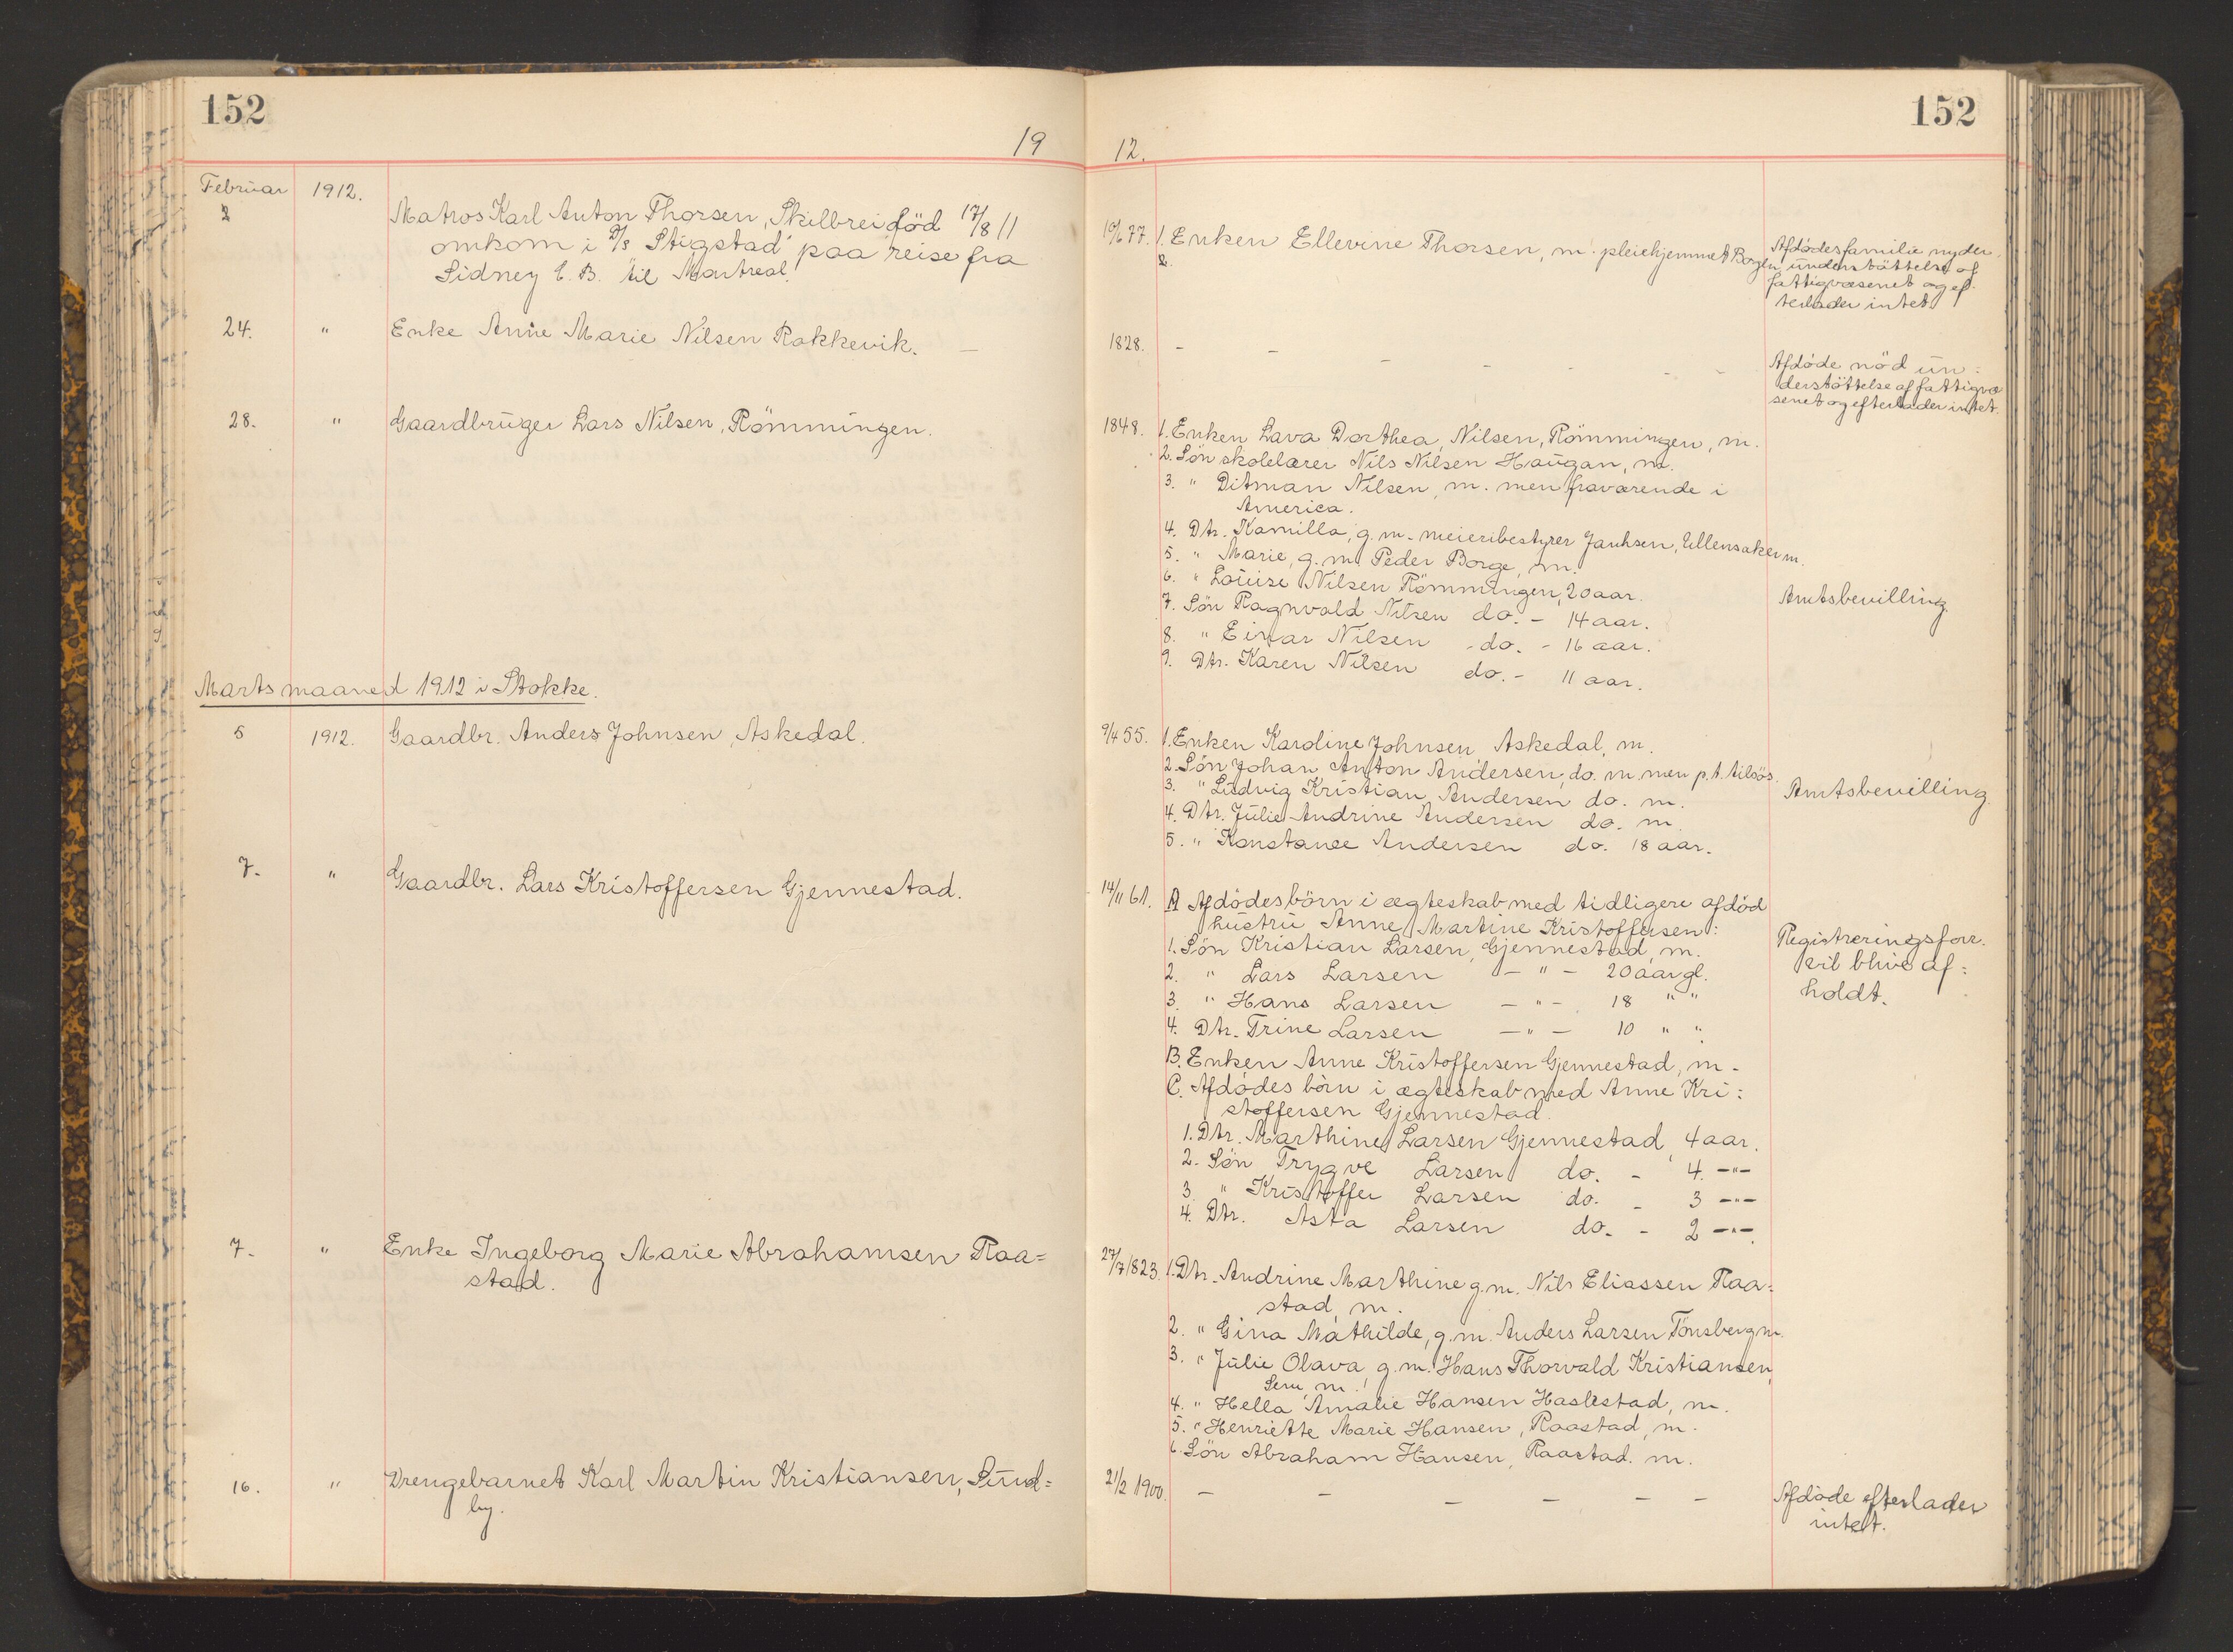 152
19
Februar 1912.
2
Matros Karl Anton Thorsen, Skilbrei död 17/8 11
omkom i D/s Stigstad paa reise fra
Sidney C. B. til Montreal.
24. " Enke Anne Marie Nilsen Rakkevik. —
28. " Gaardbruger Lars Nilsen, Römmingen.
Marts maaned 1912 i Stokke.
5 1912. Gaardbr. Anders Johnsen, Askedal.
7. " Gaardbr. Lars Kristoffersen Gjennestad.
7. " Enke Ingeborg Marie Abrahamsen Raa=
stad.
16. " Drengebarnet Karl Martin Kristiansen, Sund=
by.
152
12.
19/6 77. 1. Enken Ellevine Thorsen, m. pleiehjemmet Borgen
2.
Afdödes familie nyder
understöttelse af
fattigvæsenet og ef-
terlader intet.
1828. — — — — — — —
Afdöde nöd un:
derstöttelse af fattigvæ
senet og efterlader intet.
1848. 1. Enken Lava Dorthea Nilsen, Römmingen, m.
2. Sön skolelærer Nils Nilsen Haugan, m.
3. " Ditman Nilsen, m. men fraværende i
America.
4. Dtr. Kamilla, g. m. meieribestyrer Janhsen, Ullensaker m.
5. " Marie, g. m. Peder Borge, m.
6. " Louise Nilsen Römmingen, 20 aar.
7. Sön Ragnvald Nilsen do. - 14 aar.
8. " Einar Nilsen - do. - 16 aar.
9. Dtr. Karen Nilsen do. - 11 aar.
Amtsbevilling.
9/4 55. 1. Enken Karoline Johnsen Askedal, m.
2. Sön Johan Anton Andersen, do. m. men p.t. tilsös.
3. " Ludvig Kristian Andersen do. m.
4. Dtr. Julie Andrine Andersen do. m.
5. " Konstance Andersen do. 18 aar.
Amtsbevilling.
14/11 61. A Afdödes börn i ægteskab med tidligere afdöd
hustru Anne Martine Kristoffersen:
1. Sön Kristian Larsen, Gjennestad, m.
2. " Lars Larsen — " — 20 aar gl.
3. " Hans Larsen — " — 18 " "
4. Dtr. Trine Larsen — " — 10 " "
B. Enken Anne Kristoffersen Gjennestad, m.
C. Afdödes börn i ægteskab med Anne Kri:
stoffersen Gjennestad.
1. Dtr. Marthine Larsen Gjennestad, 4 aar.
2. Sön Trygve Larsen do. - 4. —"—
3. " Kristoffer Larsen do. - 3 —"—
4. Dtr. Asta Larsen do. - 2 —"—.
Registreringsforr.
vil blive af:
holdt.
27/7 1823. 1. Dtr. Andrine Marthine g. m. Nils Eliassen Raa=
stad, m.
2. " Gina Mathilde, g. m. Anders Larsen Tönsberg m.
3. " Julie Olava, g. m. Hans Thorvald Kristiansen,
Sem, m.
4. " Hella Amalie Hansen Haslestad, m.
5. " Henriette Marie Hansen, Raastad, m.
6. Sön Abraham Hansen, Raastad. m.
21/2 1900. — — — — — —
Afdöde efterlader
intet.